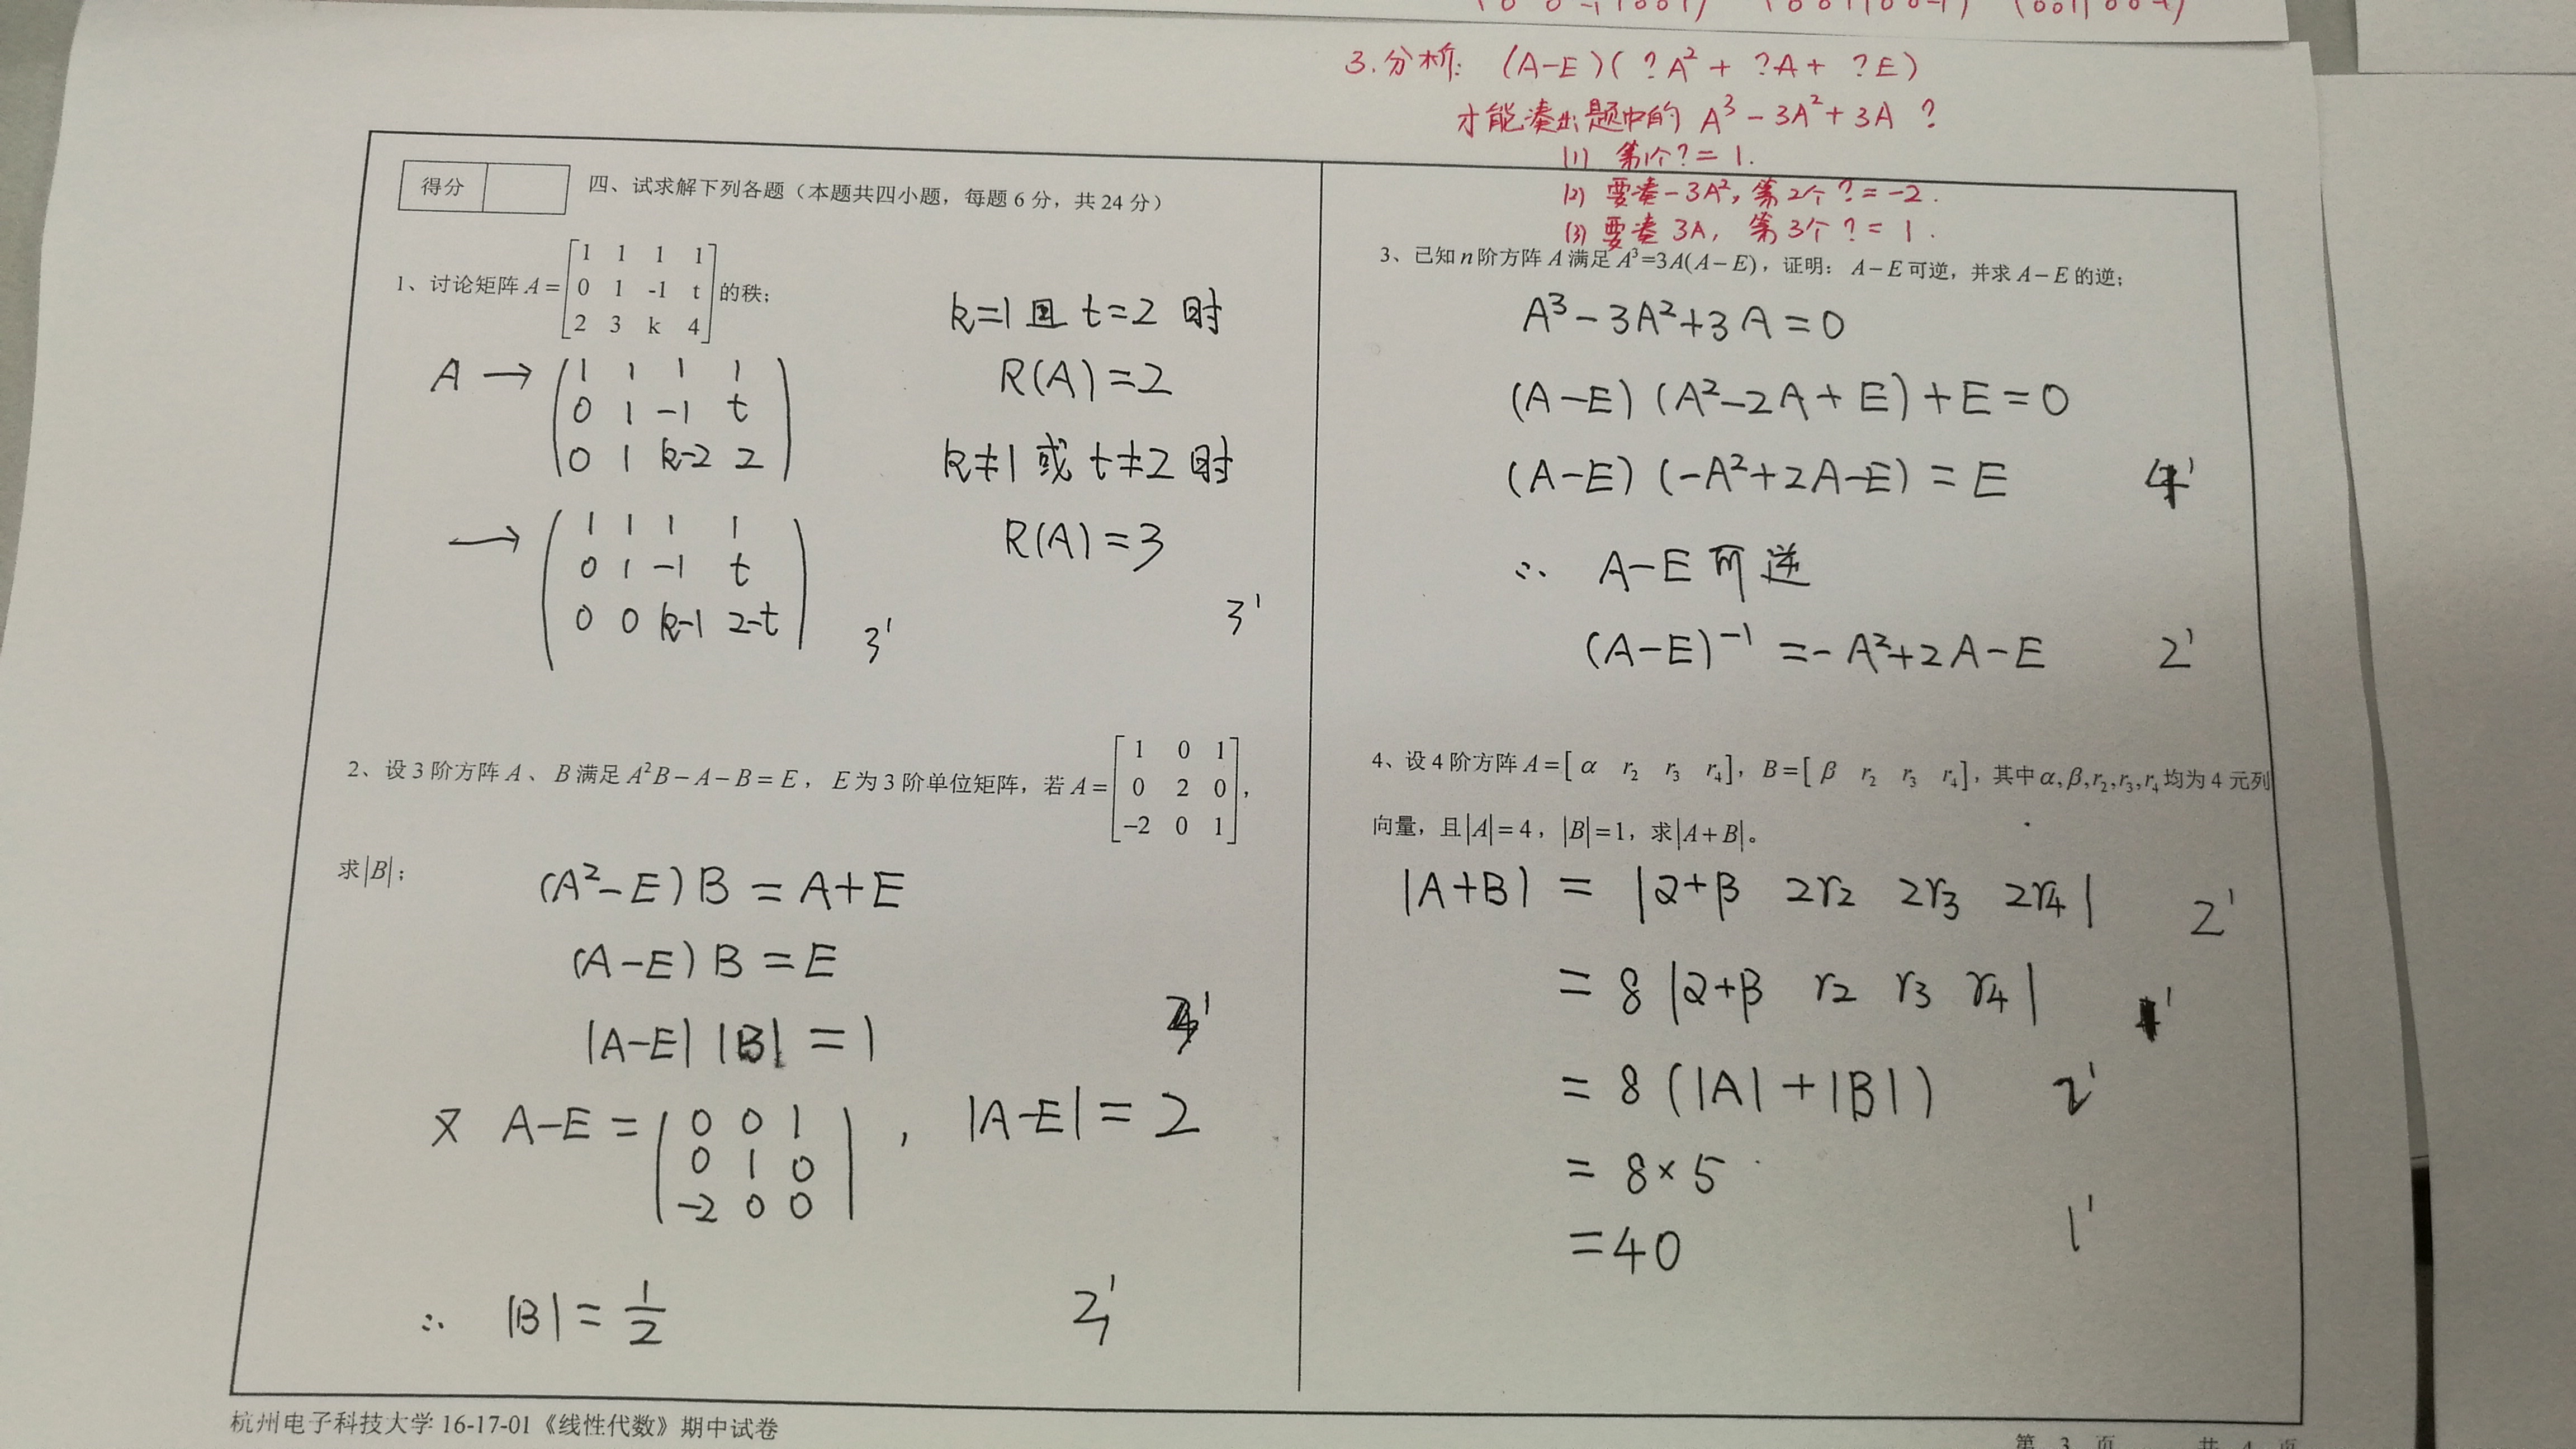 3.分析: (A-E)(?A²+?A+?E)
才能凑出题中的 A³-3A²+3A ?
(1) 第1个?=1.
(2) 要凑-3A², 第2个?=-2.
(3) 要凑 3A, 第3个?=1.
得分
四、试求解下列各题(本题共四小题,每题6分,共24分)
1、讨论矩阵 A= [1 1 1 1
0 1 -1 t
2 3 k 4] 的秩;
A → (1 1 1 1
0 1 -1 t
0 1 k-2 2)
→ (1 1 1 1
0 1 -1 t
0 0 k-1 2-t) 3'
k=1 且 t=2 时
R(A)=2
k≠1 或 t≠2 时
R(A)=3
3'
2、设3阶方阵A、B满足A²B-A-B=E,E为3阶单位矩阵,若A= [1 0 1
0 2 0
-2 0 1],
求|B|;
(A²-E)B=A+E
(A-E)B=E
|A-E| |B|=1
又 A-E= (0 0 1
0 1 0
-2 0 0), |A-E|=2
∴ |B|=1/2
3、已知n阶方阵A满足A³=3A(A-E),证明:A-E可逆,并求A-E的逆;
A³-3A²+3A=0
(A-E)(A²-2A+E)+E=0
(A-E)(-A²+2A-E)=E 4'
∴ A-E可逆
(A-E)⁻¹=-A²+2A-E 2'
4、设4阶方阵A=[α r₂ r₃ r₄],B=[β r₂ r₃ r₄],其中α,β,r₂,r₃,r₄均为4元列
向量,且|A|=4,|B|=1,求|A+B|。
|A+B| = |α+β 2r₂ 2r₃ 2r₄| 2'
= 8|α+β r₂ r₃ r₄|
= 8(|A|+|B|) 2'
= 8×5
=40 1'
杭州电子科技大学16-17-01《线性代数》期中试卷
第 3 页 共 4 页